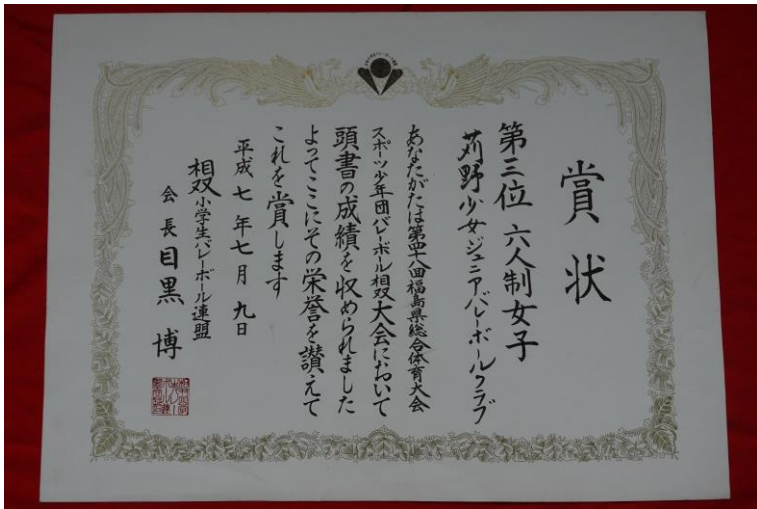 賞状
第三位 六人制女子
苅野少女ジュニアバレーボールクラブ
あなたがたは第四八回福島県総合体育大会
スポーツ少年団バレーボール相双大会において
頭書の成績を収められました
よってここにその栄誉を讃えて
これを賞します
平成七年七月九日
相双小学生バレーボール連盟
会長 目黒 博